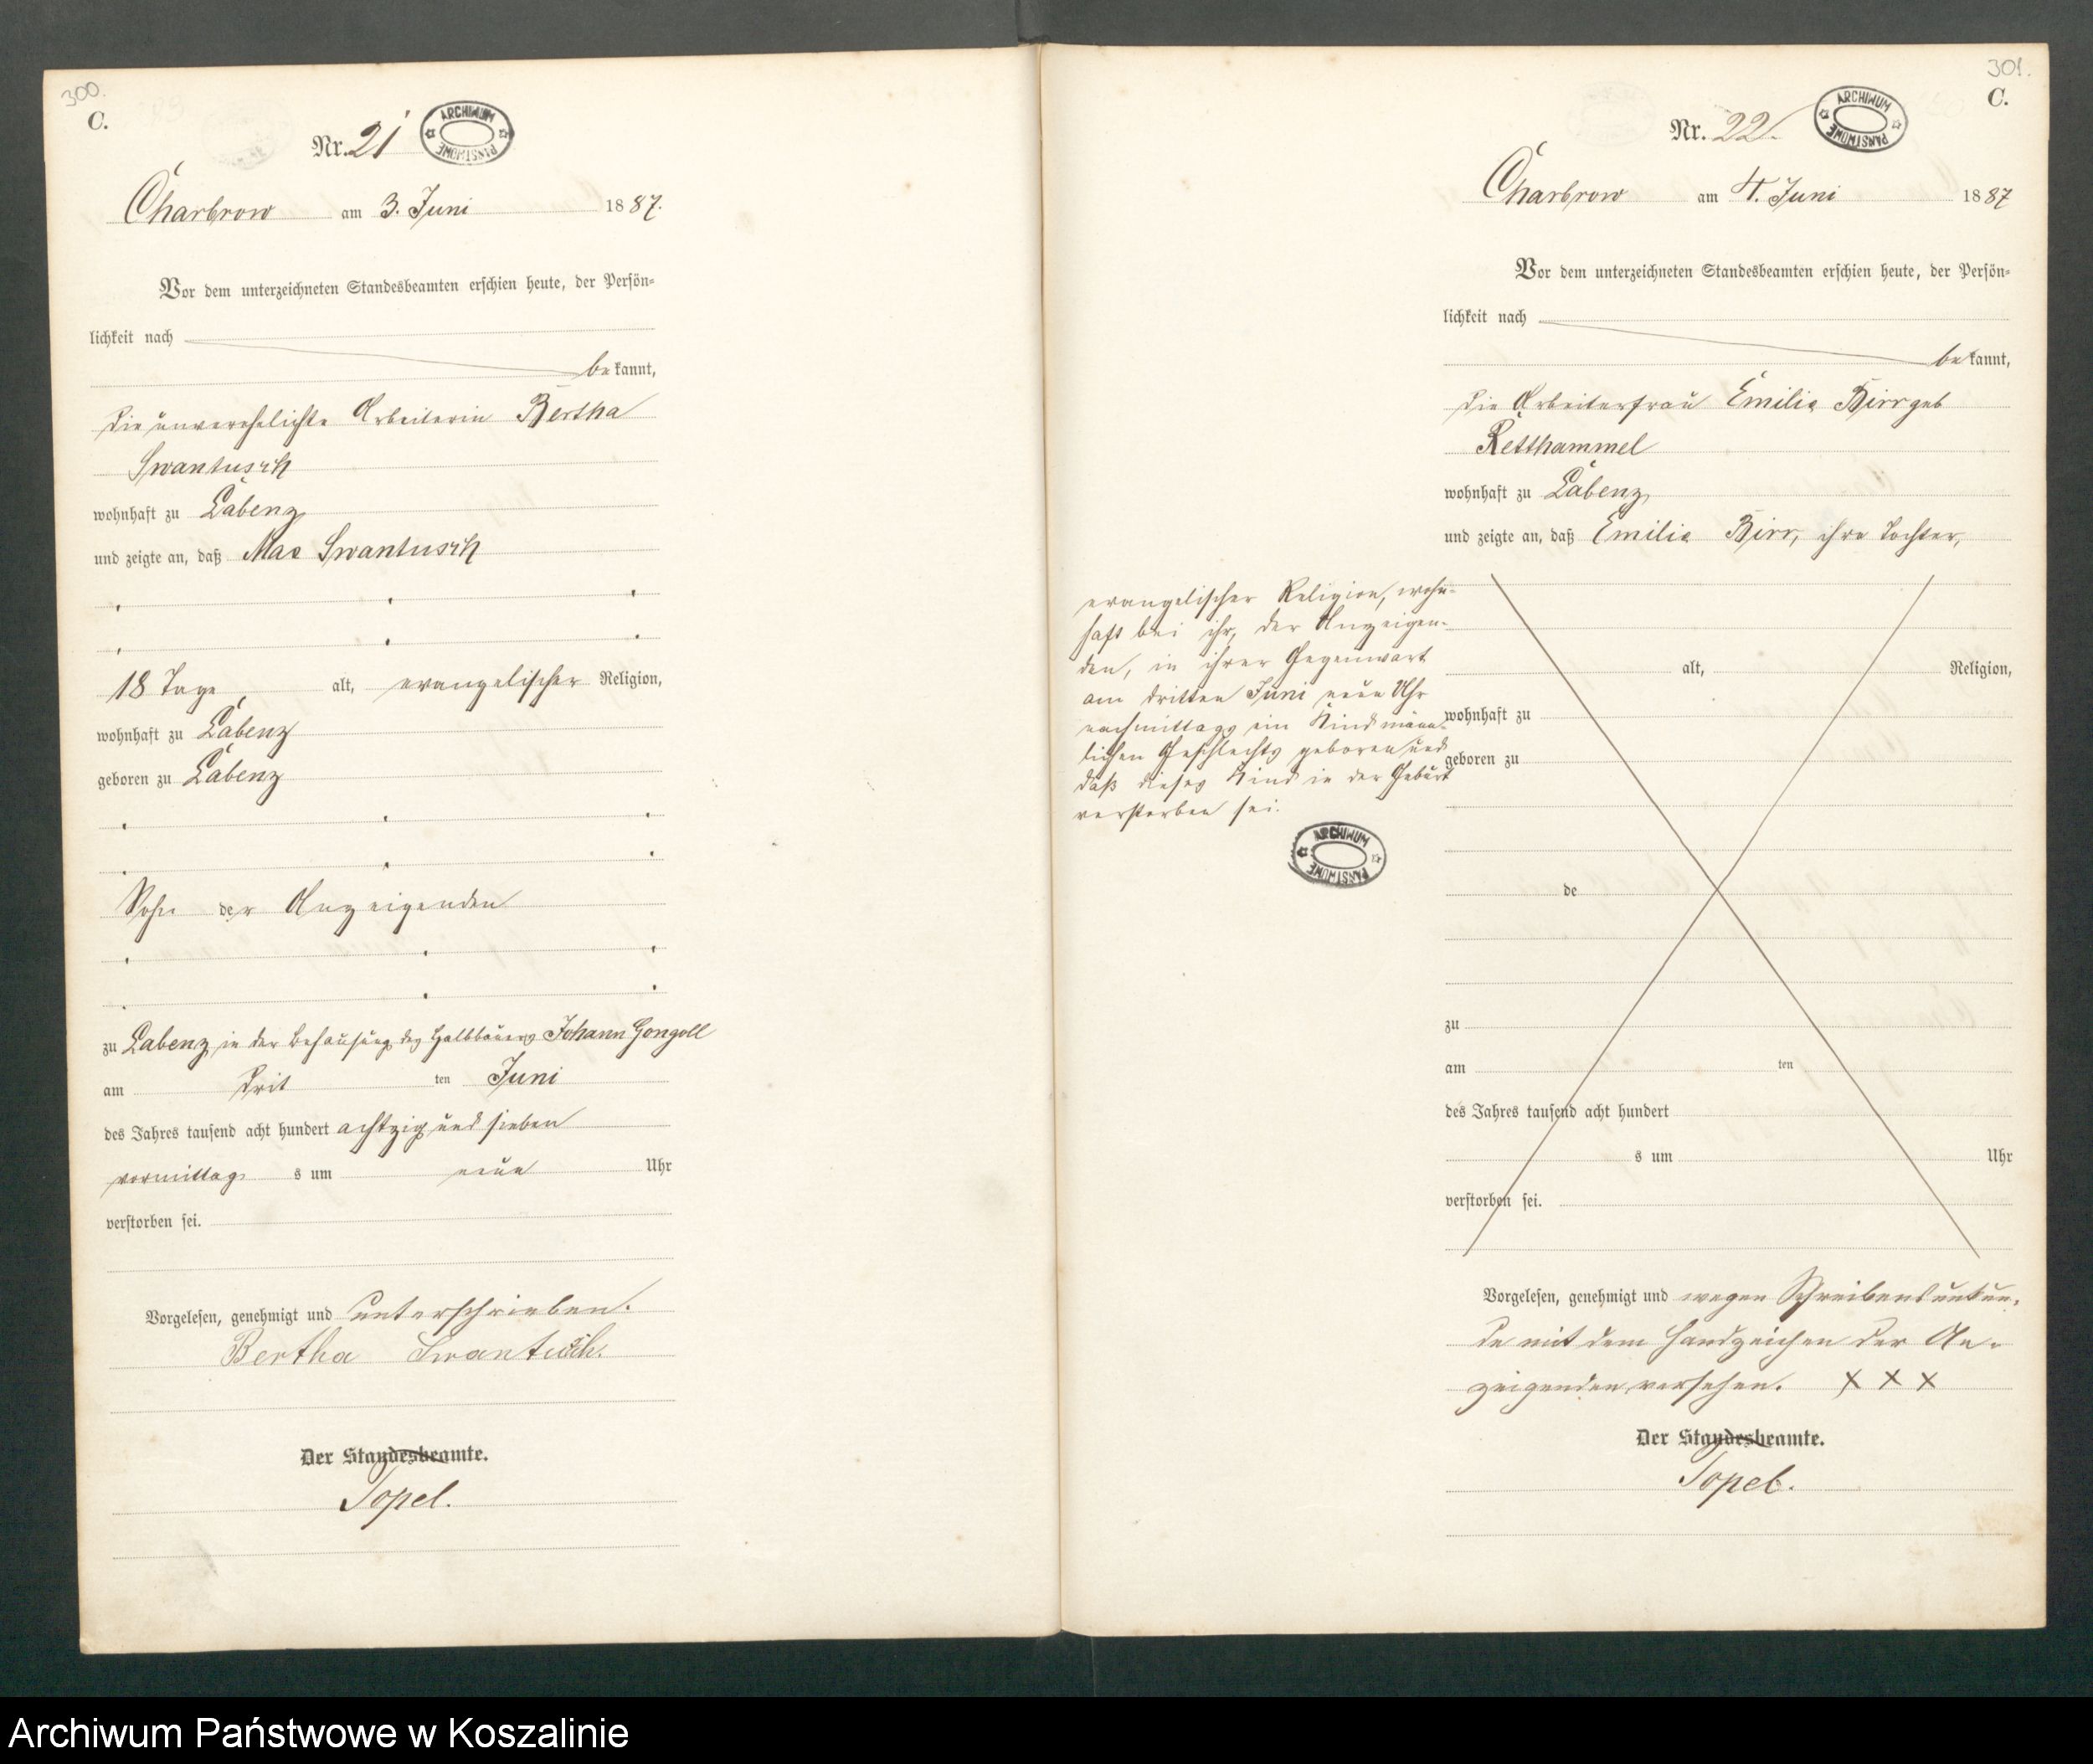 300.
C.
Nr. 21
ARCHIWUM PAŃSTWOWE
Charbrow am 3. Juni 1887.
Vor dem unterzeichneten Standesbeamten erschien heute, der Persön-
lichkeit nach
bekannt,
die unverehelichte Arbeiterin Bertha
Swantusch
wohnhaft zu Labenz
und zeigte an, daß Max Swantusch
18 Tage alt, evangelischer Religion,
wohnhaft zu Labenz
geboren zu Labenz
Sohn der Anzeigenden
zu Labenz in der Behausung des Halbbauers Johann Gongoll
am dritten Juni
des Jahres tausend acht hundert achtzig und sieben
vormittags um neun Uhr
verstorben sei.
Vorgelesen, genehmigt und unterschrieben.
Bertha Swantusch.
Der Standesbeamte.
Topel.
301.
C.
Nr. 22.
ARCHIWUM PAŃSTWOWE
Charbrow am 4. Juni 1887
Vor dem unterzeichneten Standesbeamten erschien heute, der Persön-
lichkeit nach
bekannt,
die Arbeiterfrau Emilie Birr geb
Retthammel
wohnhaft zu Labenz,
und zeigte an, daß Emilie Birr, ihre Tochter,
evangelischer Religion, wohn-
haft bei ihr, der Anzeigen-
den, in ihrer Gegenwart
am dritten Juni neun Uhr
nachmittags ein Kind männ-
lichen Geschlechts geboren und
daß dieses Kind in der Geburt
verstorben sei.
ARCHIWUM PAŃSTWOWE
alt, Religion,
wohnhaft zu
geboren zu
de
zu
am ten
des Jahres tausend acht hundert
s um Uhr
verstorben sei.
Vorgelesen, genehmigt und wegen Schreibensunkun-
de mit dem Handzeichen der An-
zeigenden versehen. X X X
Der Standesbeamte.
Topel.
Archiwum Państwowe w Koszalinie